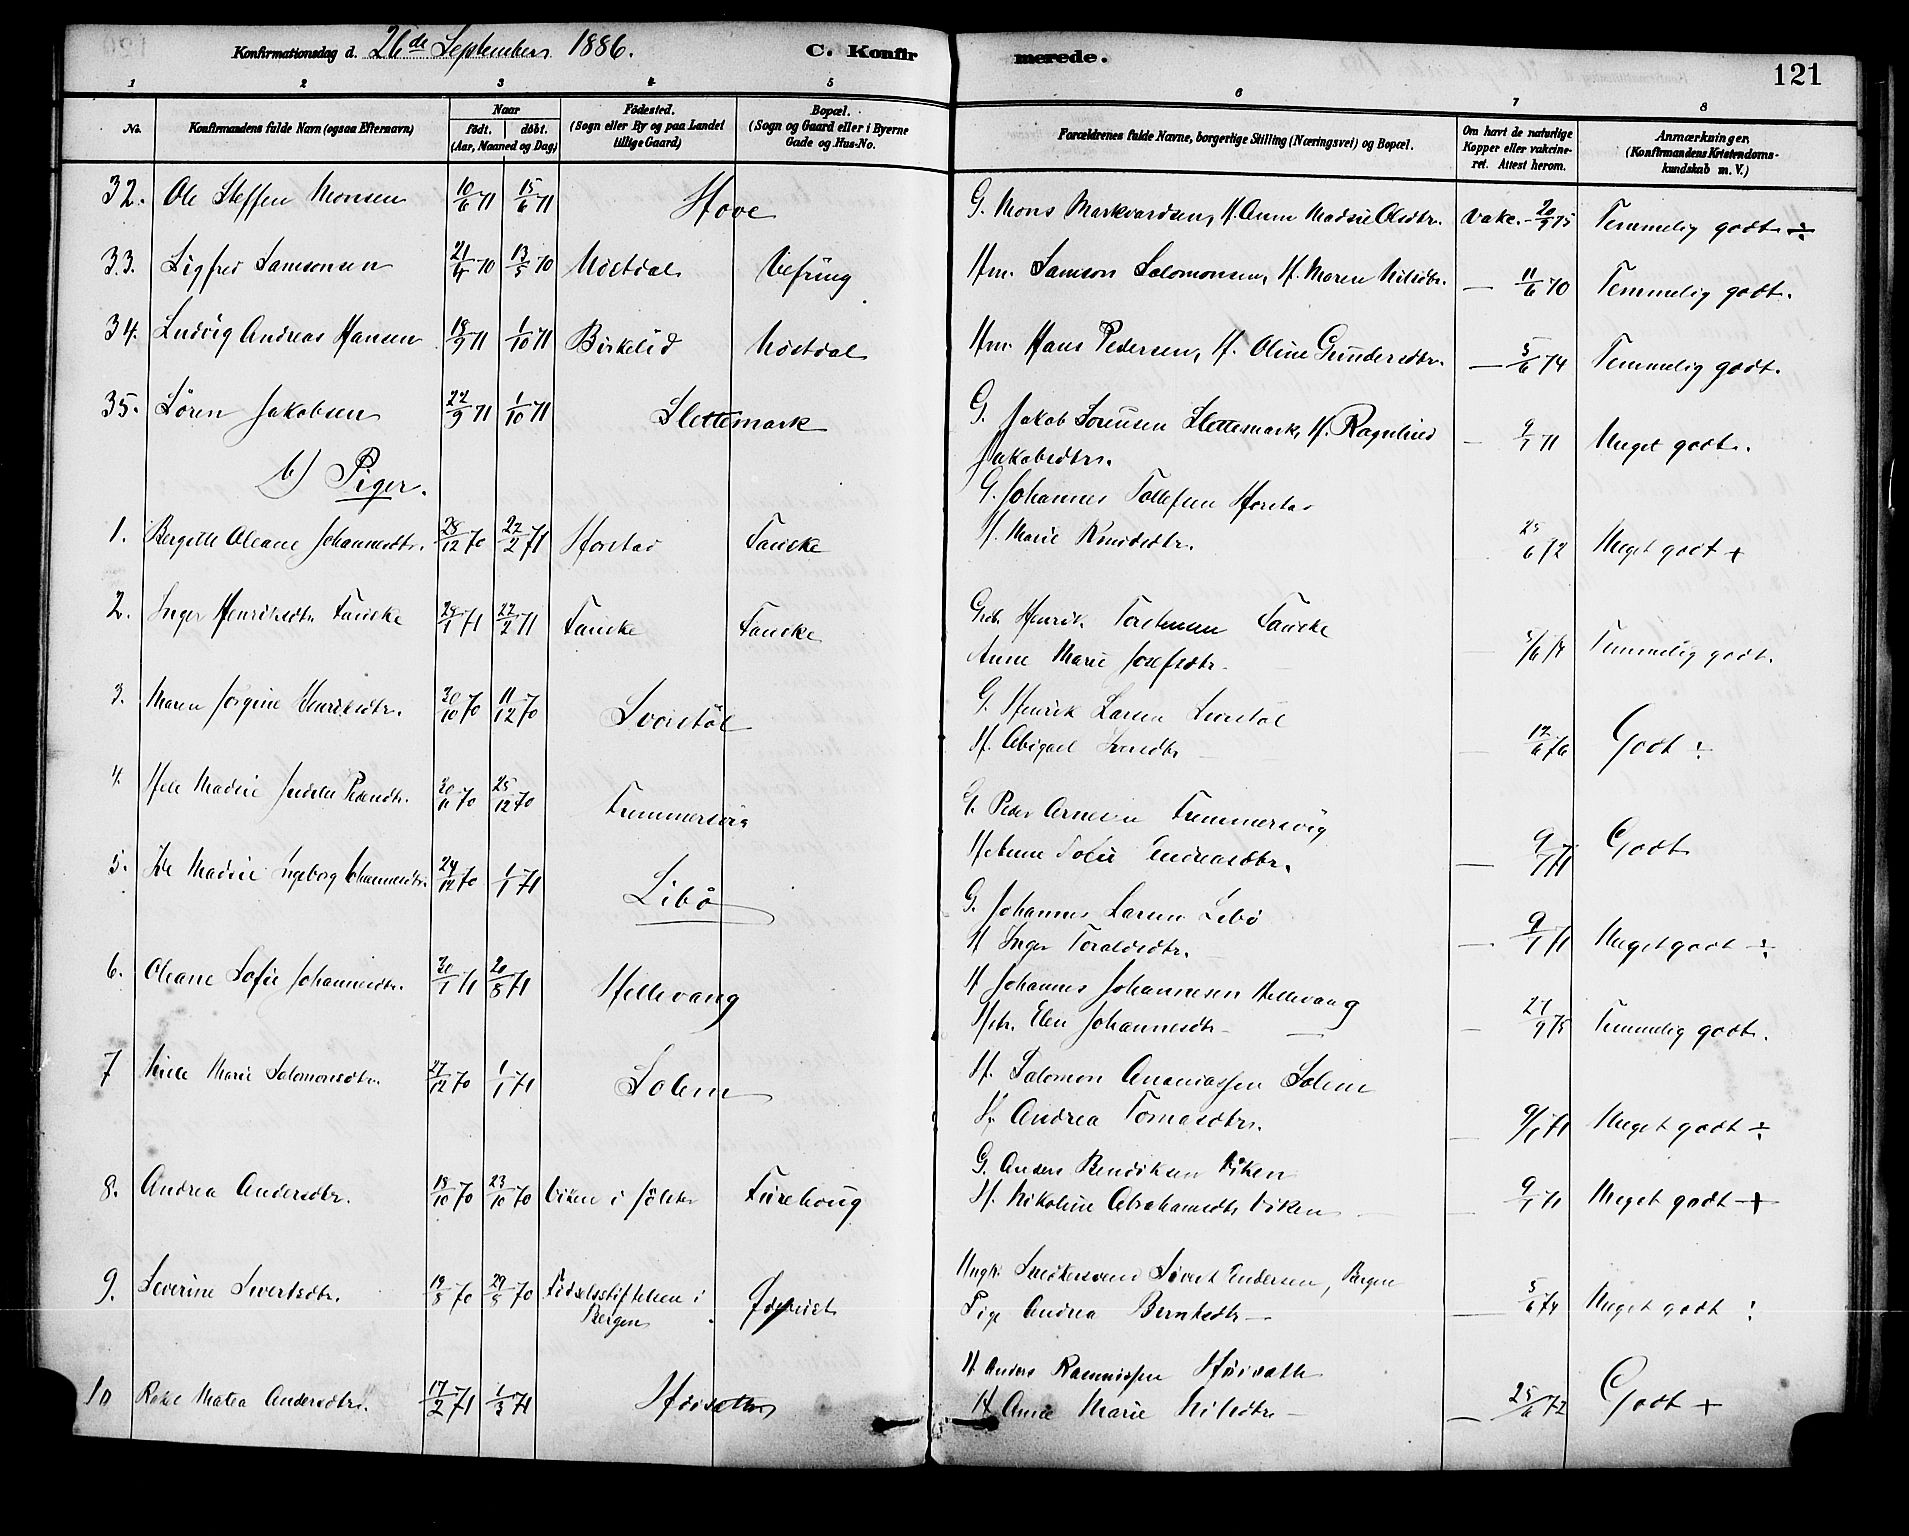 Konfirmationsdag d. 26de September 1886. C. Konfirmerede. 121
1 2 3 4 5 6 7 8
No. Konfirmandens fulde Navn (ogsaa Efternavn) Naar født. døbt. (Aar, Maaned og Dag) Fødested. (Sogn eller By og paa Landet tillige Gaard) Bopæl. (Sogn og Gaard eller i Byerne Gade og Hus-No. Forældrenes fulde Navne, borgerlige Stilling (Næringsvei) og Bopæl. Om havt de naturlige Kopper eller vakcineret. Attest herom. Anmærkninger, (Konfirmandens Kristendomskundskab m. V.)
32. Ole Steffen Monsen 10/6 71 15/6 71 Hove G. Mons Markvardsen, H. Anne Madsie Olsdtr. vakc. - 20/9 75 Temmelig godt ÷
33. Sigfred Samsonsen 21/4 70 13/5 70 Möstdal Vefring Hm. Samson Salomonsen, H. Maren Nilsdtr. — 11/6 70 Temmelig godt.
34. Ludvig Andreas Hansen 18/9 71 1/10 71 Birkelid Möstdal Hm. Hans Pedersen, H. Oline Gundersdtr. — 5/6 74 Temmelig godt.
35. Sören Jakobsen 22/9 71 1/10 71 Slettemark G. Jakob Sörensen Slettemark, H. Ragnhild — 9/1 71 Meget godt.
Jakobsdtr.
b) Piger.
G. Johannes Tollefsen Horstad
1. Bergitte Oleane Johannesdtr. 28/12 70 22/2 71 Horstad Fauske H. Marie Knudsdtr. 25/6 72 Meget godt +
2. Inger Henriksdtr Fauske 28/1 71 22/2 71 Fauske Fauske Henrik Torstensen Fauske
Anne Marie Josefsdtr. 5/6 74 Temmelig godt.
3. Maren Jörgine Henriksdtr. 30/10 70 11/12 70 Svorstöl G. Henrik Larsen Svorstöl
H. Abigael — 12/6 76 Godt ÷
4. Madsie Pedersdtr. 70 25/12 70 Fummersvig G. Peder Arnesen Fummersvig
H. Anne Sofie Andreasdtr. — 9/1 71 Godt
5. Ide Madsie Ingeborg Johannesdtr. 24/12 70 1/1 71 Libö G. Johannes Larsen Libö
H Inger Toraldsdtr. — 9/1 71 Meget godt ÷
6. Oleane Sofie Johannesdtr. 30/1 71 20/8 71 Hellevang H Johannes Johannesen Hellevang
Elen Johannesdtr — — 21/9 75 Temmelig godt.
7 Marie Salomonsdtr. 27/12 70 1/1 71 Solem H. Salomon Ananiassen Solem
H. Andrea Tomasdtr. — 9/1 71 Meget godt ÷
8. Andrea Andersdtr. 18/10 70 23/10 70 Viken i Jölster Furehoug G. Anders Bendiksen Viken
H. Nikoline Abrahamsdtr Viken — 9/1 71 Meget godt +
9. Severine Sivertsdtr. 19/8 70 29/8 70 Födselsstiftelsen i Bergen Ungk. Sivert Endersen, Bergen
Pige Andrea Berntsdtr — — 5/6 74 Meget godt ÷
10 Rakel Matea Andersdtr. 17/2 71 1/3 71 Höisæther H Anders Rasmussen Höisæth
H Anne Marie Nilsdtr — — 25/6 72 Godt +